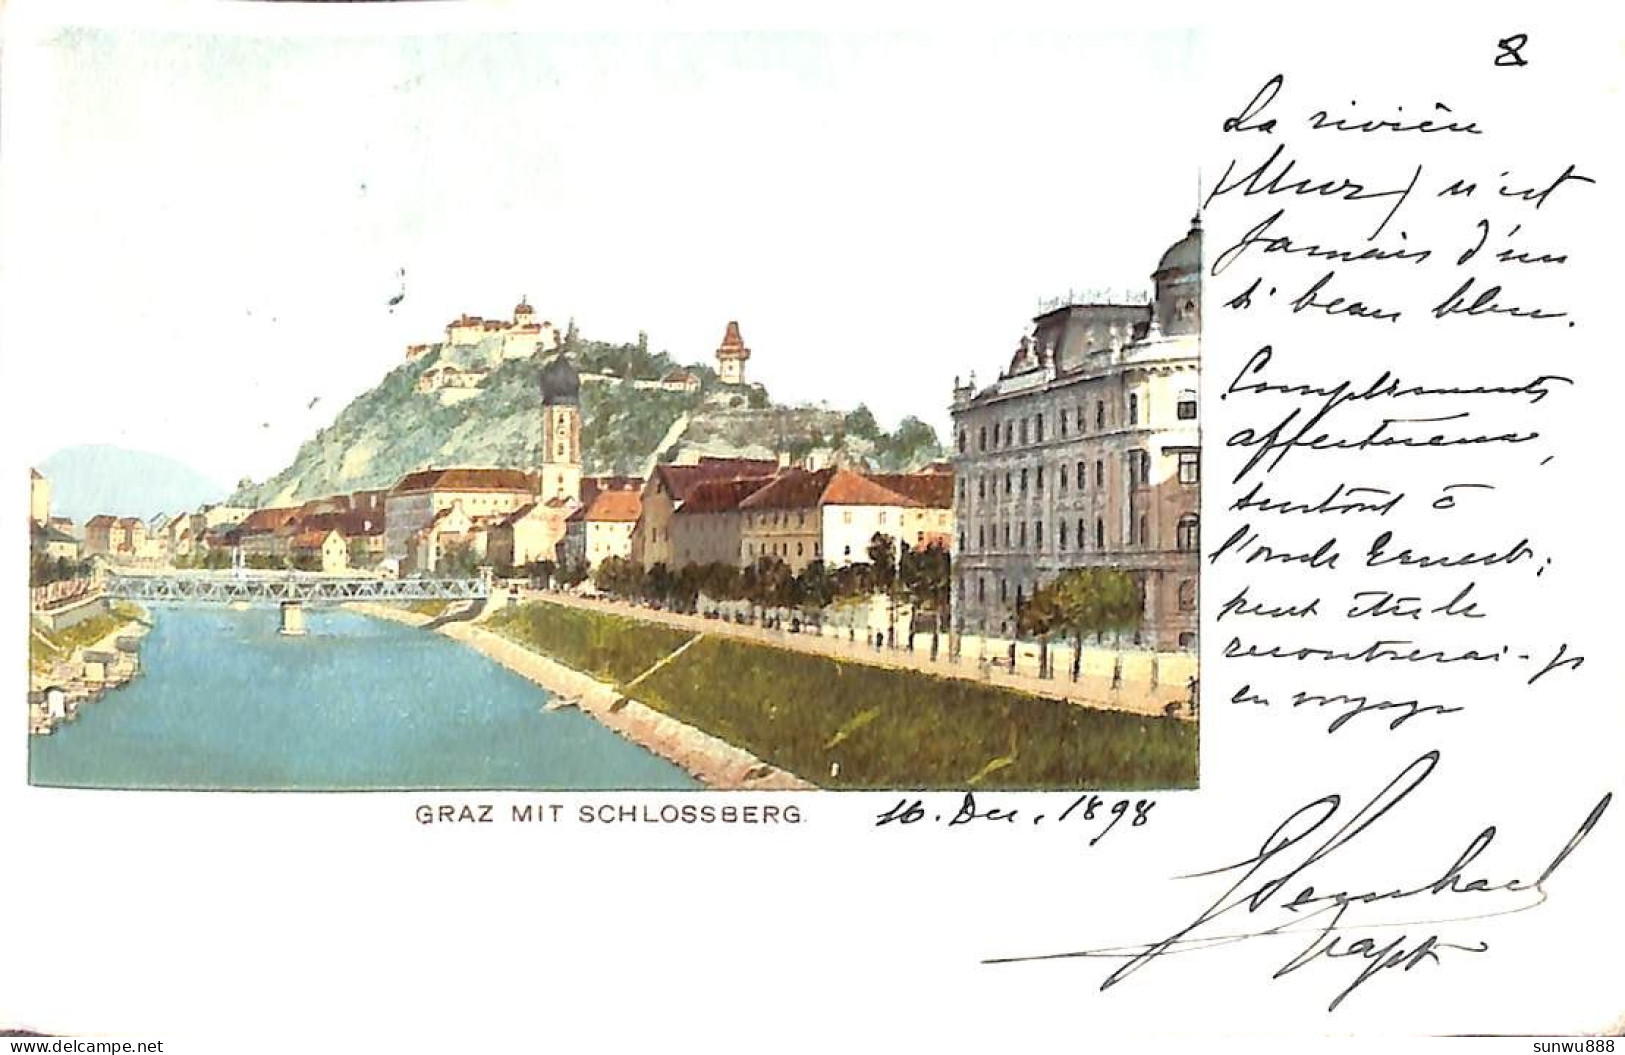 8
La rivière
(Mur) n'est
jamais d'un
si beau bleu.
Compliments
affectueux,
surtout à
l'oncle Ernest;
peut être le
rencontrerai-je
en voyage
GRAZ MIT SCHLOSSBERG.
16. Dec. 1898
delcampe.net
sunwu888